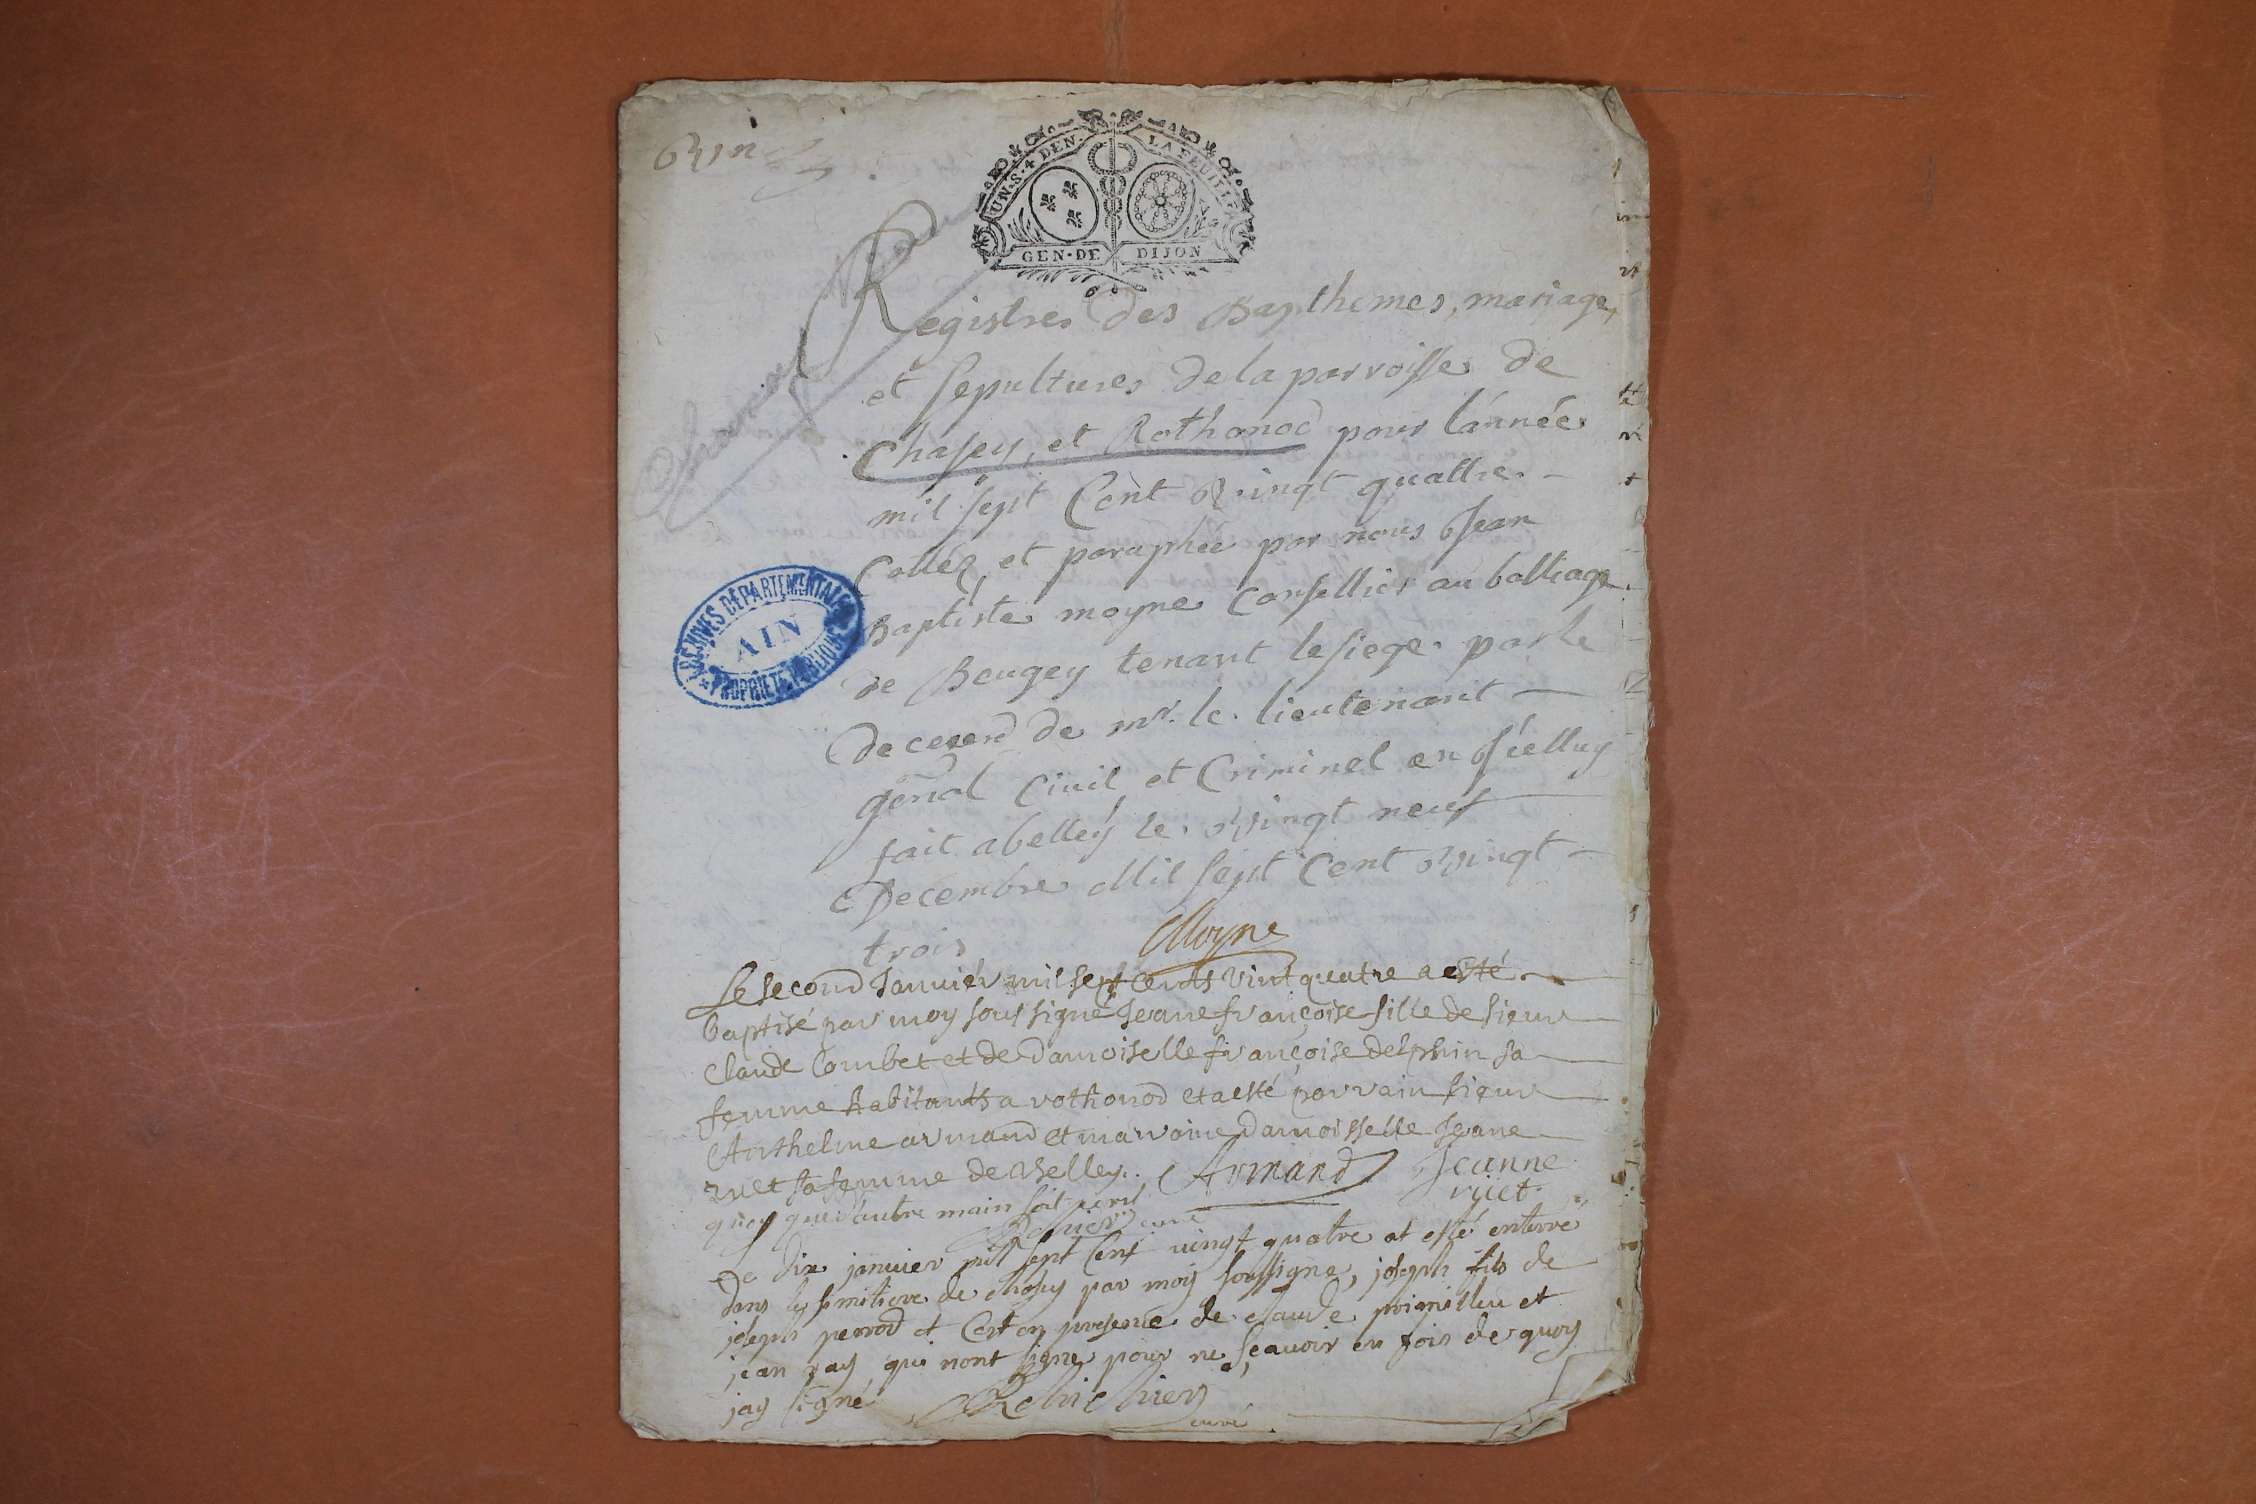 UN·S·4 DEN. LA FEUILLE
GEN·DE DIJON
Registres des Bapthemes, mariage,
et sepultures de la parroisse de
Chasey, et Rothonod pour l'année
mil sept Cent Vingt quattre.
Cottéz, et paraphée par nous Jean
Baptiste moyne Consellier au balliage
de Beugey tenant le siege par le
de mr. le lieutenant
genal Civil, et Criminel en Icelluy
fait a belley le Vingt neuf
Decembre Mil sept Cent Vingt
trois
Moyne
ARCHIVES DÉPARTEMENTALES
AIN
PROPRIÉTÉ PUBLIQUE
Le second Januier mil sept Cents Vint quatre a esté
baptisé par moy sous signé Jeane françoise fille de sieur
Claude Combet et de Damoiselle françoise delphin sa
femme habitants a rothonod et a esté parrain sieur
Anthelme armand et marraine Damoisselle Jeane
sa femme de Belley. Armand Jeanne
quoy que d'autre main soit
curé
Le dix januier mil sept Cent vingt quatre at esté enterré
dans le simitiere de chasey par moy soussigné, joseph fils de
joseph perrod et Cest en presence de claude et
jean ray qui nont signé pour ne sçauoir en fois de quoy
jay signé
curé